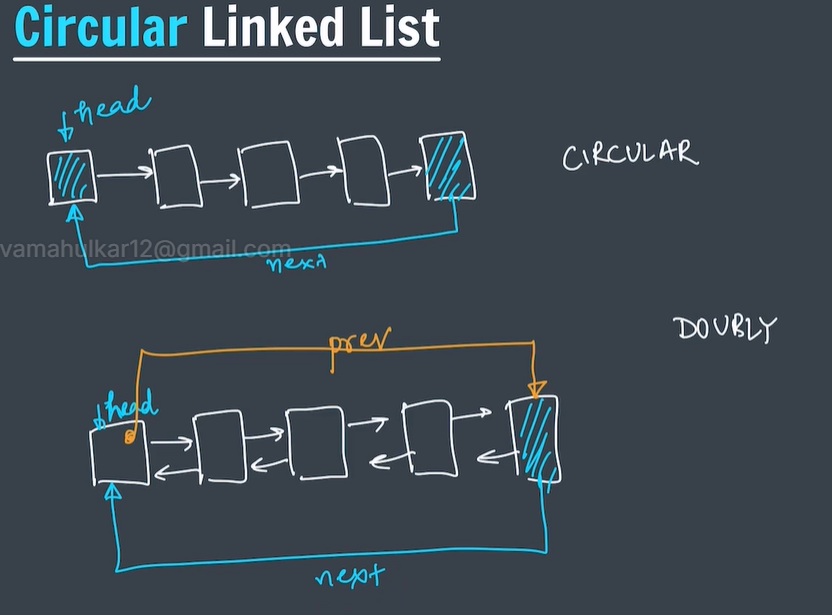 Circular Linked List
head
CIRCULAR
vamahulkar12@gmail.com
next
DOUBLY
prev
head
next